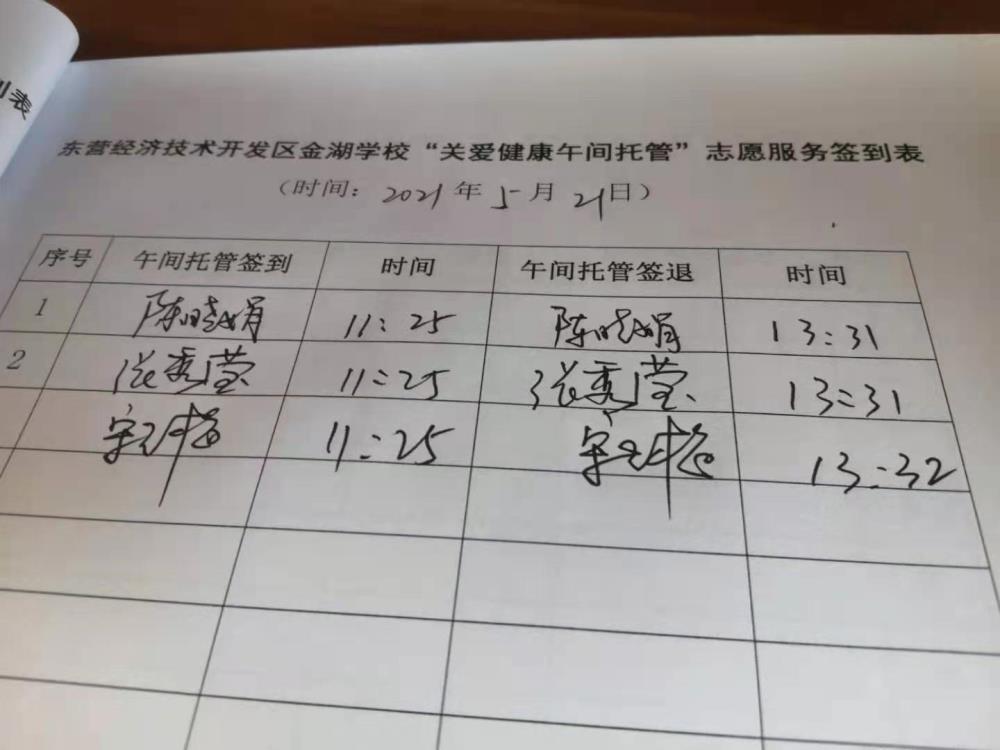 刂表
东营经济技术开发区金湖学校“关爱健康午间托管”志愿服务签到表
（时间：2021年5月21日）
序号 午间托管签到 时间 午间托管签退 时间
1 陈晓娟 11:25 陈晓娟 13:31
2 张秀莹 11:25 张秀莹 13:31
11:25 13:32